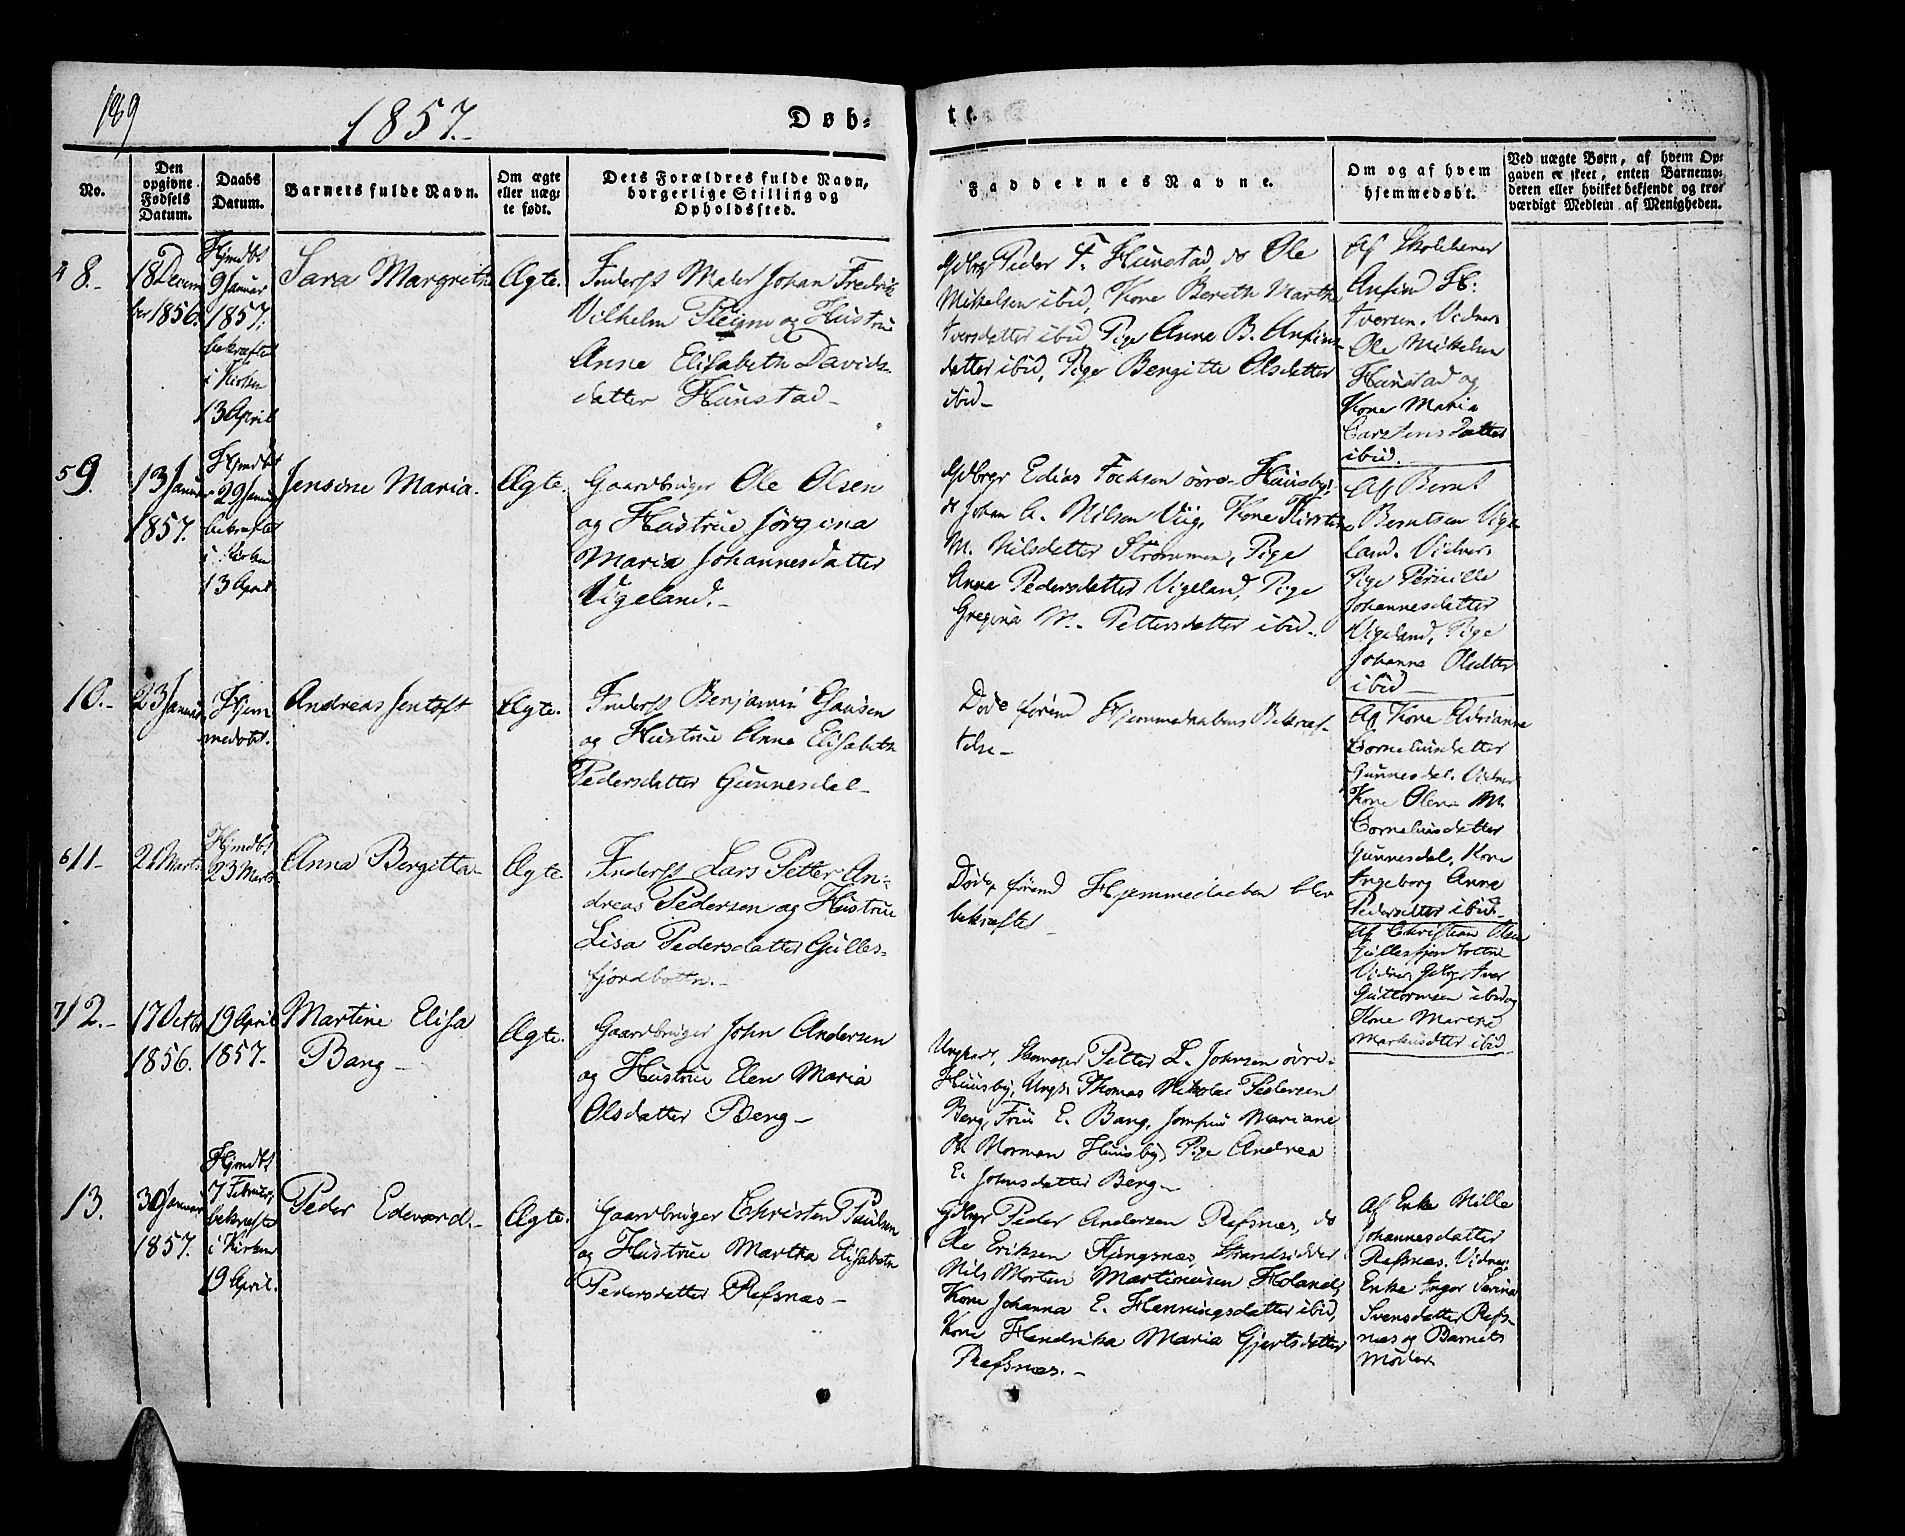 189
1857.
Døb-
te.
No.
Den opgivne Fødsels Datum.
Daabs Datum.
Barnets fulde Navn.
Om ægte eller uægte født.
Dets Forældres fulde Navn, borgerlige Stilling og Opholdssted.
Faddernes Navne.
Om og af hvem hjemmedøbt.
Ved uægte Børn, af hvem Opgaven er skeet, enten Barnemoderen eller hvilket bekjendt og troværdigt Medlem af Menigheden.
4 8.
18 Decem
ber 1856.
Hjmdbt
9 Januar
1857.
bekræftet
i Kirken
13 April
Sara Margreth
Ægte.
Inderst Maler Johan Fredrik
Vilhelm og Hustrue
Anne Elisabeth Davids-
datter Hunstad
Gdbrgr Peder F. Hunstad, do Ole
Mikelsen ibid, Kone Bereth Martha
Iversdatter ibid, Pige Anne B. Anfins-
datter ibid, Pige Bergitte Olsdatter
ibid
Af Skolelærer
Anfin H.
Iversen. Vidner
Ole Mikelsen
Hunstad og
Kone Maria
Carstensdatter
ibid.
5 9.
13 Januar
1857.
Hjmdbt
29 Januar
bekræftet
i Kirken
13 April
Jensine Maria.
Ægte.
Gaardbruger Ole Olsen
og Hustrue Jørgina
Maria Johannesdatter
Vigeland.
Gdbrgr Edias Fochsen øvre Huusby,
do Johan A. Nilsen Viig, Kone Kirsten
M. Nilsdatter Strømmen, Pige
Anne Pedersdatter Vigeland, Pige
Gregina M. Pettersdatter ibid.
Af Bernt
Berntsen Vige-
land. Vidner
Pige Pernille
Johannesdatter
Vigeland, Pige
Johanna Olsdtter
ibid
10.
23 Januar
Hjem
medøbt.
Andreas Jentoft
Ægte.
Inderst Benjamin
og Hustrue Anne Elisabeth
Pedersdatter Gunnesdal
Døde førend Hjemmedaabens Bekræf-
telse
Af Kone Adrianna
Corneliusdatter
Gunnesdal. Vidner
Kone Olena M.
Corneliusdatter
Gunnesdal, Kone
Ingeborg Anna
Pedersdatter ibid.
6 11
21 Marts
Hjmdbt
23 Marts
Anna Bergitta
Ægte.
Inderst Lars Petter An-
dreas Pedersen og Hustrue
Lisa Pedersdatter Gulles-
fjordbotn.
Døde førend Hjemmedaaben blev
bekræftet
Af Christian Olsen
Vidner, Gdbgr Iver
Guttormsen ibid og
Kone Marthe
Markusdtter ibid
7 12.
17 Octbr
1856.
19 April
1857.
Martine Elisa
Bang
Ægte.
Gaardbruger John Andersen
og Hustrue Elen Maria
Olsdatter Berg
Ungkarl, Petter L. Johnsen øvre
Huusby, Ungk. Thomas Nikolai Pedersen
Berg, Frue E. Bang, Jomfru Mariane
Norman Huusby, Pige Andrea
E. Johnsdatter Berg
13.
30 Januar
1857.
Hjmdbt
7 Februar,
bekræftet
i Kirken
19 April.
Peder Edevard.
Ægte.
Gaardbruger Christen Paulsen
og Hustrue Martha Elisabeth
Pedersdatter Refsnæs
Gdbgr Peder Andersen Refsnæs, do
Ole Eriksen Kongsnæs, Strandsidder
Nils Morten Martinusen Holand,
Kone Johanna E. Henningsdatter ibid,
Kone Hendrika Maria Gjertsdatter
Refsnæs.
Af Enke Nille
Johannesdatter
Refsnæs. Vidner
Enke Inger Serina
Svensdatter Refs-
næs og Barnets
Moder